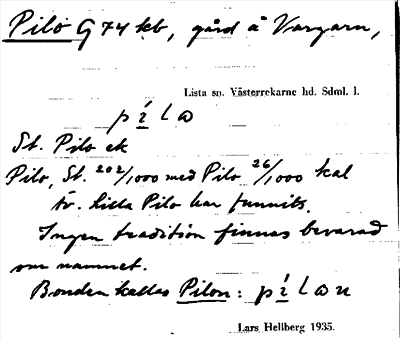 Pilo G 74 kb, gård å Vargarn,
Lista sn. Västerrekarne hd. Sdml. l.
St. Pilo ek
Pilo, St. 202/1000 med Pilo 26/1000 kal
tv. Lilla Pilo har funnits.
Ingen tradition finnas bevarad
om namnet.
Bonden kallas Pilon:
Lars Hellberg 1935.